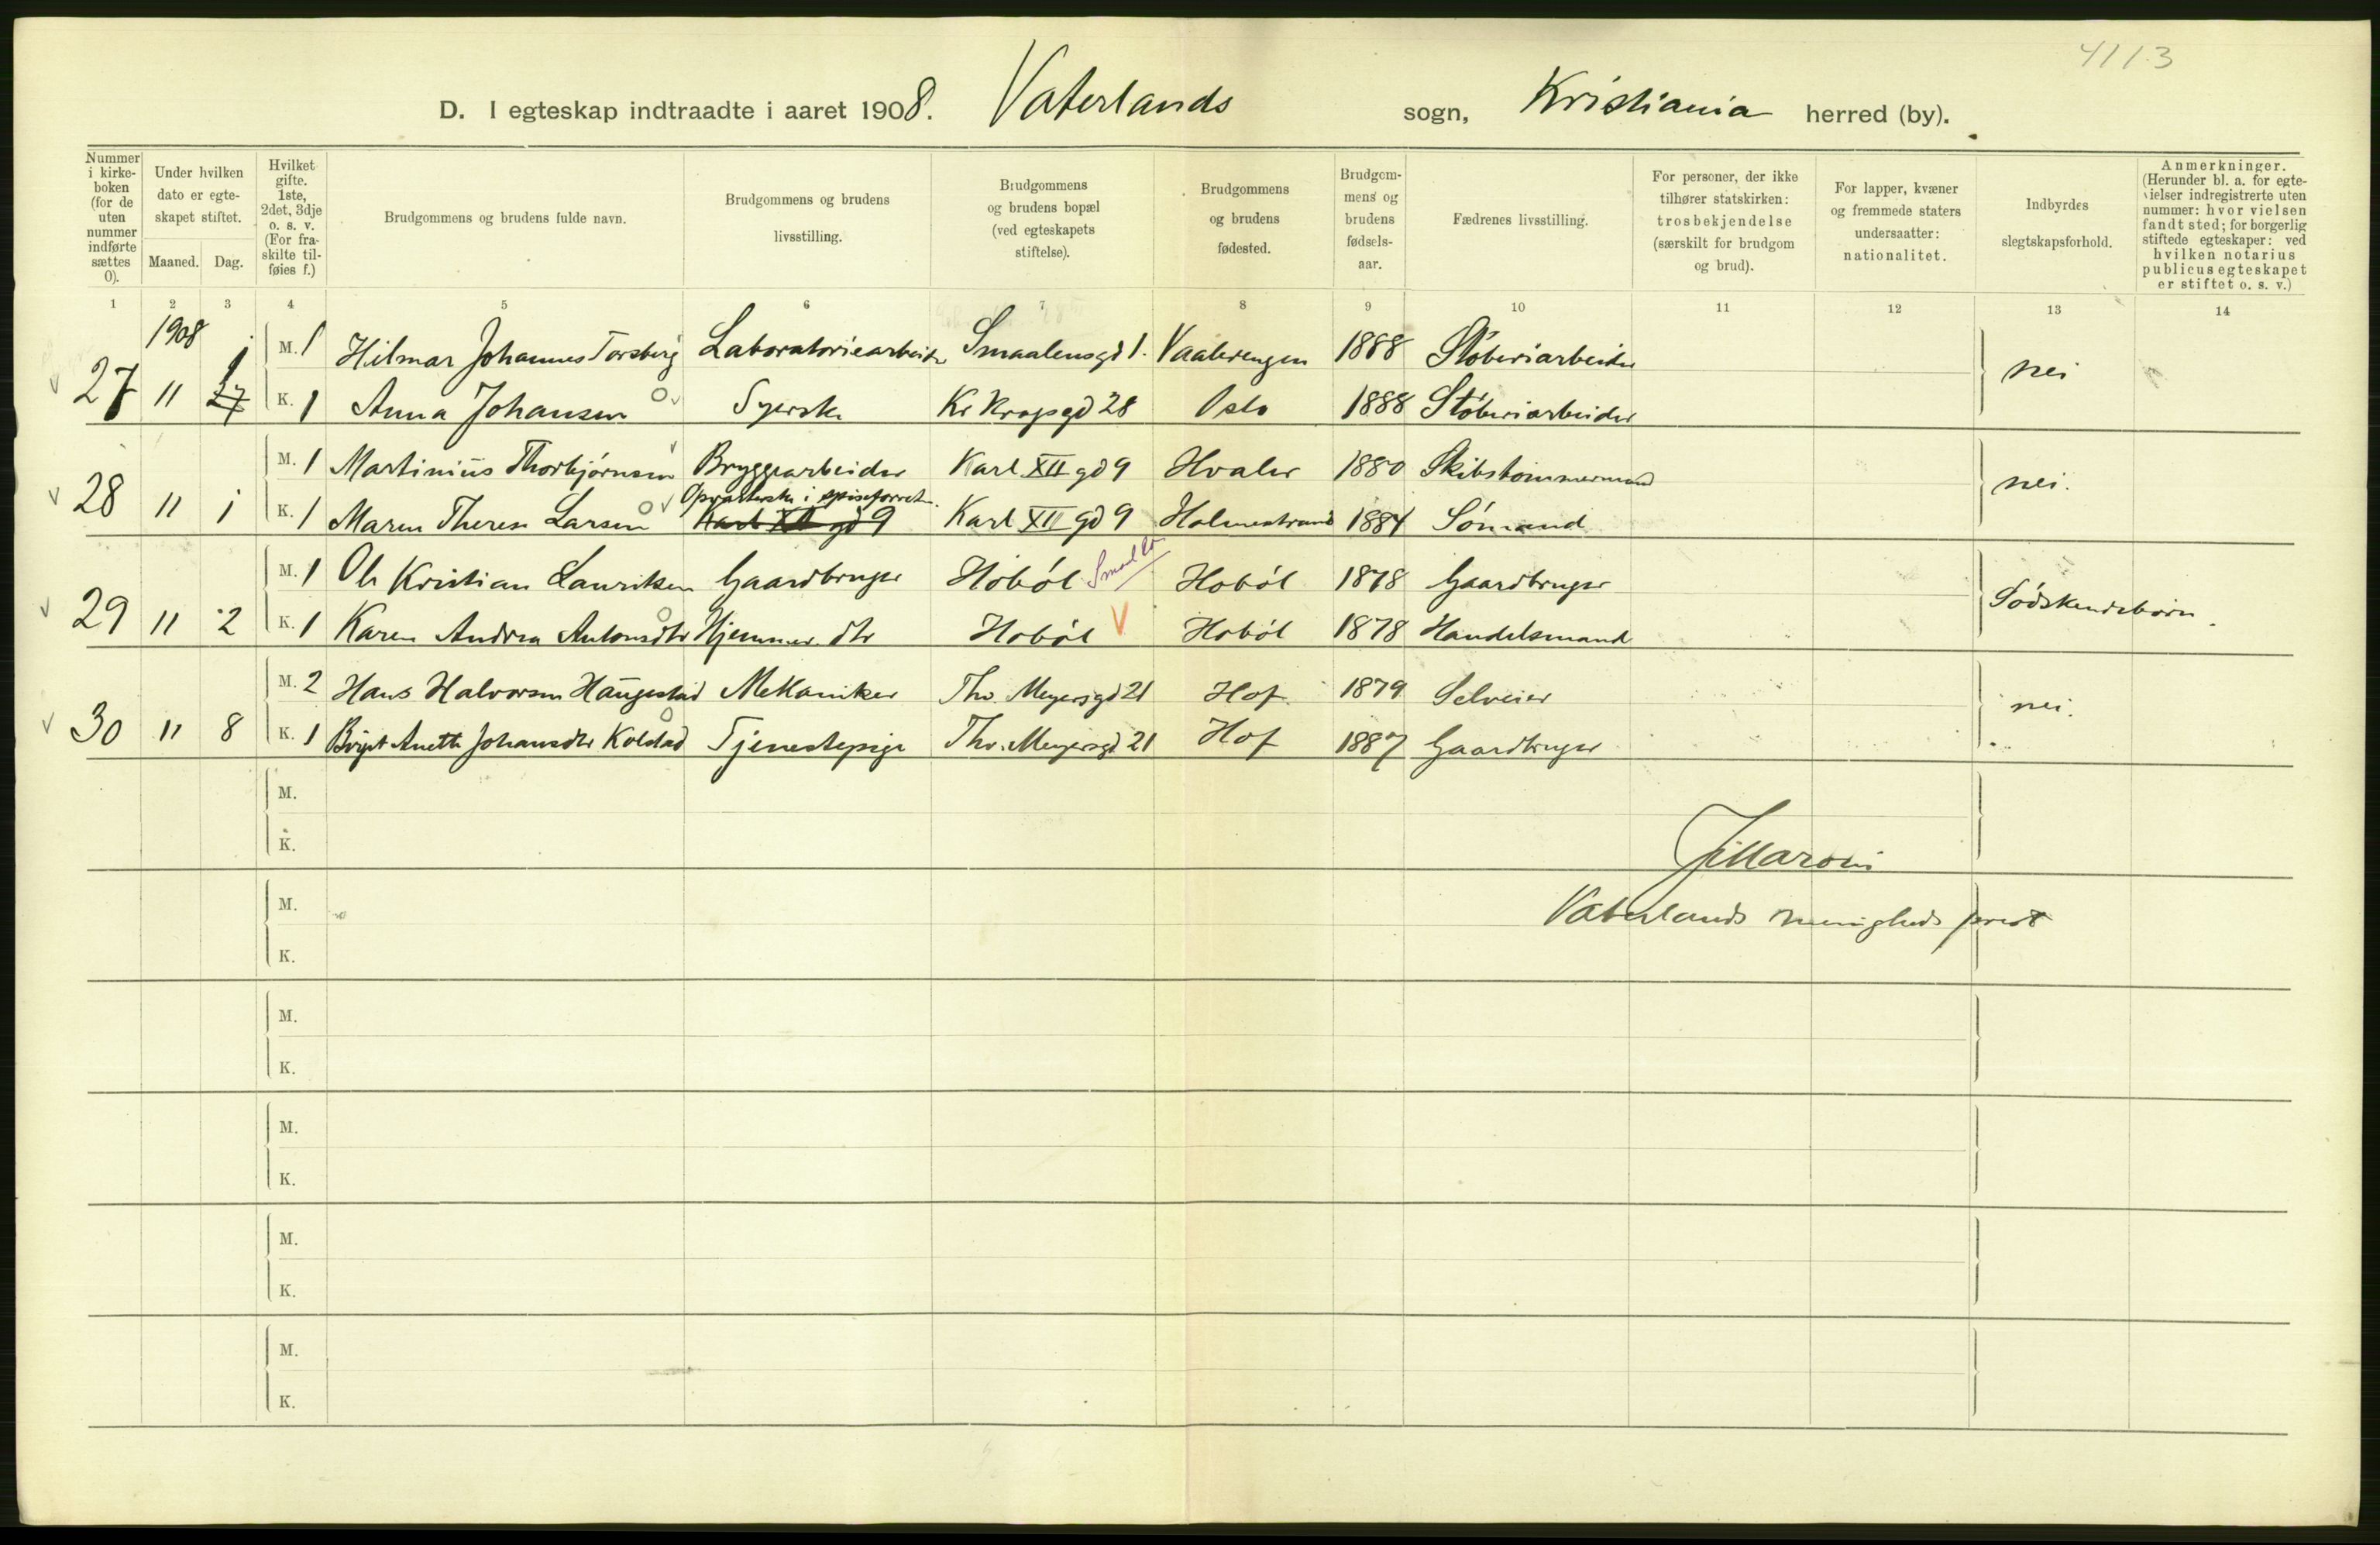 4113
D. I egteskap indtraadte i aaret 1908. Vaterlands sogn, Kristiania herred (by).
Nummer i kirke-boken (for de uten nummer indførte sættes 0).
Under hvilken dato er egte-skapet stiftet.
Maaned. Dag.
Hvilket gifte. 1ste, 2det, 3dje o. s. v. (For fra-skilte til-føies f.)
Brudgommens og brudens fulde navn.
Brudgommens og brudens livsstilling.
Brudgommens og brudens bopæl (ved egteskapets stiftelse).
Brudgommens og brudens fødested.
Brudgom-mens og brudens fødsels-aar.
Fædrenes livsstilling.
For personer, der ikke tilhører statskirken: trosbekjendelse (særskilt for brudgom og brud).
For lapper, kvæner og fremmede staters undersaatter: nationalitet.
Indbyrdes slegtskapsforhold.
Anmerkninger. (Herunder bl. a. for egte-vielser indregistrerte uten nummer: hvor vielsen fandt sted; for borgerlig stiftede egteskaper: ved hvilken notarius publicus egteskapet er stiftet o. s. v.)
1 2 3 4 5 6 7 8 9 10 11 12 13 14
1908
M. 1 Hilmar Johannes Torsberg Laboratoriearbeider Smaalensgd 1. Vaalerengen 1888 Støberiarbeider
27 11 27 1 nei
K. 1 Anna Johansen Syerske Kr Krogsgd 28 Oslo 1888 Støberiarbeider
M. 1 Martinius Thorbjørnsen Bryggearbeider Karl XII gd 9 Hvaler 1880 Skibstømmermand
28 11 1 nei.
Opvarterske i spiseforretn.
K. 1 Maren Therese Larsen Karl XII gd 9 Karl XII gd 9 Holmestrand 1884 Sømand
M. 1 Ole Kristian Lauritsen Gaardbruger Hobøl Smaalen Hobøl 1878 Gaardbruger
29 11 2 Sødskendebørn.
K. 1 Karen Andrea Antonsdtr Hjemmev. dtr Hobøl Hobøl 1878 Handelsmand
M. 2 Hans Halvorsen Haugestad Mekaniker Thv. Meyersgd 21 Hof 1879 Selveier
30 11 8 nei.
K. 1 Birgit Anette Johansdtr Kolstad Tjenestepige Thv. Meyersgd 21 Hof 1887 Gaardbruger
M.
K.
J Maroni
M.
Vaterlands menigheds prest
K.
M.
K.
M.
K.
M.
K.
M.
K.